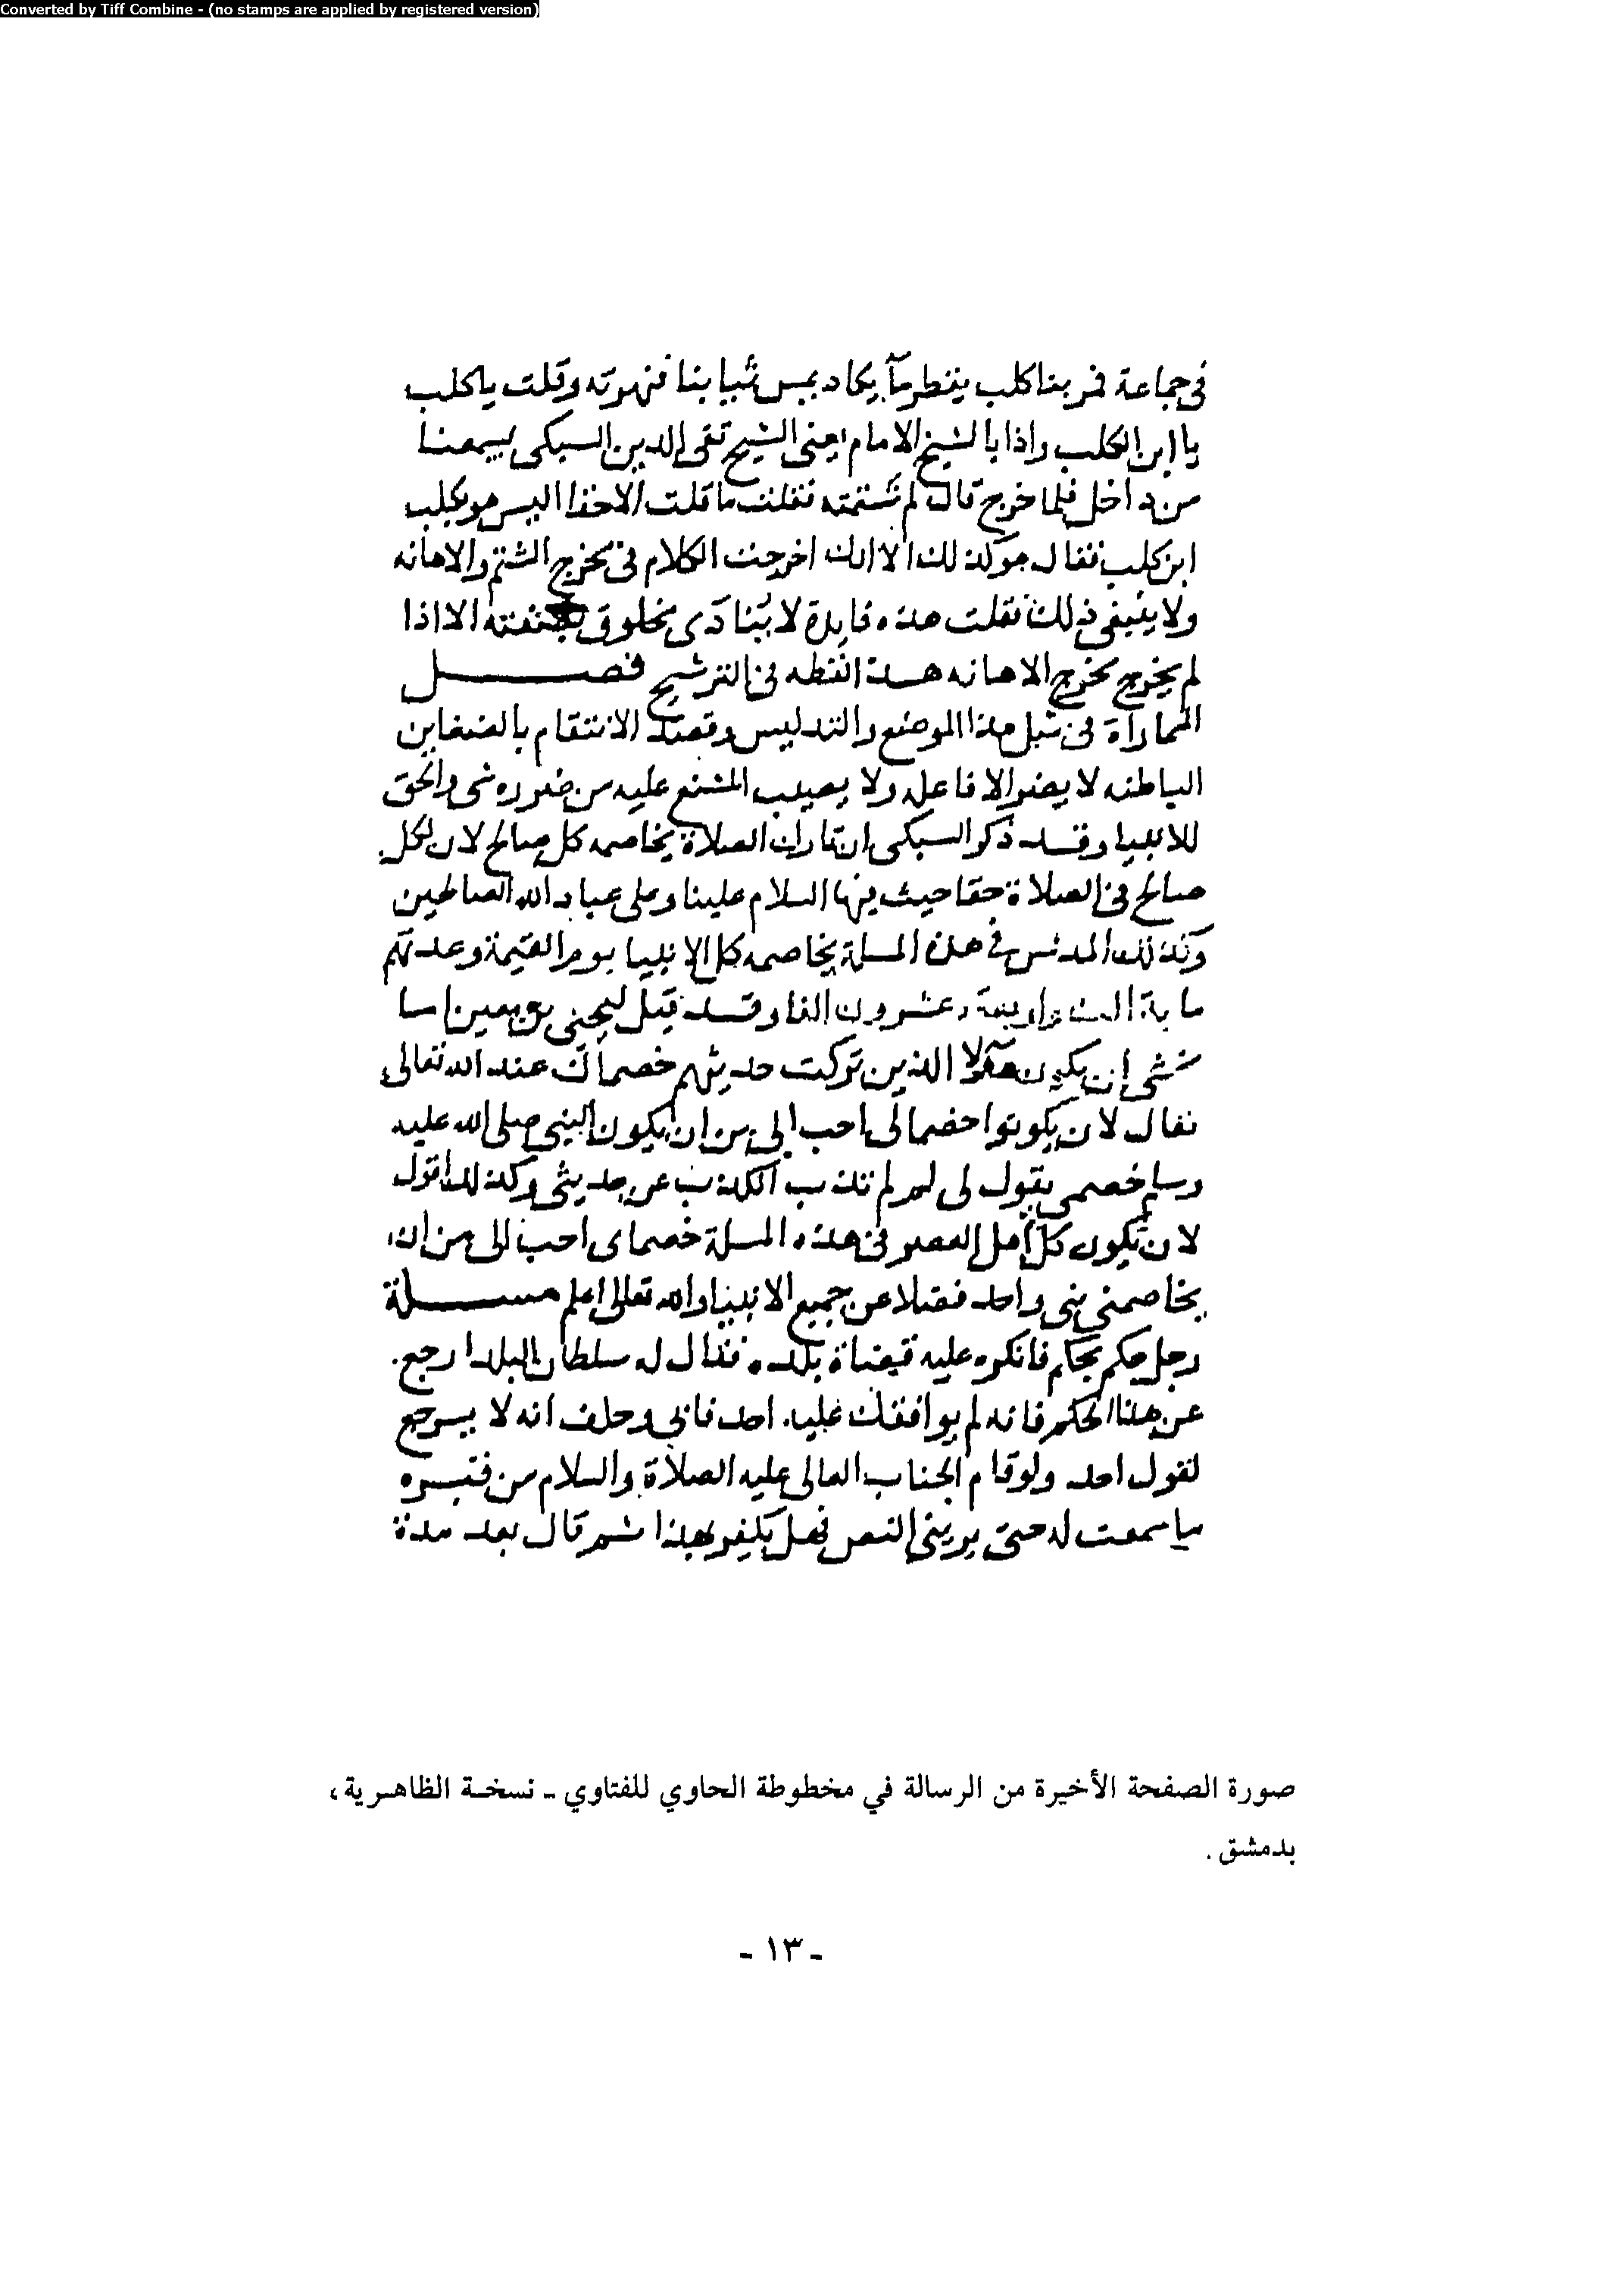 Converted by Tiff Combine - (no stamps are applied by registered version)
فى جماعة فمر بنا كلب يقطر مآ يكاد يمس ثيابنا فنهرته وقلت ياكلب
يا ابن الكلب واذا بالشيخ الامام يعنى الشيخ تقى الدين السبكى يسمعنا
من داخل فلما خرج قال لم شتمته فقلت ما قلت الا حقا اليس هو كلب
ابن كلب فقال هو كذلك الا انك اخرجت الكلام فى مخرج الشتم والاهانه
ولا ينبغى ذلك فقلت هذه فايدة لا ينادى مخلوق بصفته الا اذا
لم يخرج مخرج الاهانه هذا لفظه فى الترشيح فصل
المماراة فى مثل هذا الموضع والتدليس وقصد الانتقام بالضغاين
الباطنه لا يضر الا فاعله ولا يصيب المشنع عليه من ضرره شى والحق
للانبيا وقد ذكر السبكى ان تارك الصلاة يخاصمه كل صالح لان لكل
صالح فى الصلاة حقا حيث فيها السلام علينا وعلى عباد الله الصالحين
وكذلك المدلس فى هذه المسلة يخاصمه كل الانبيا يوم القيمة وعدتهم
ماية الف واربعة وعشرون الفا وقد قيل ليحيى بن معين اما
تخشى ان يكون هؤلا الذين تركت حديثهم خصماك عند الله تعالى
فقال لان يكونوا خصماى احب الى من ان يكون النبى صلى الله عليه
وسلم خصمى يقول لى لم لم تذب الكذب عن حديثى وكذلك اقول
لان تكون كل اهل العصر فى هذه المسلة خصماى احب الى من ان
يخاصمنى نبى واحد فضلا عن جميع الانبيا والله تعالى اعلم مسلة
رجل حكم بحكم فانكره عليه قضاة بلده فقال له سلطان البلد ارجع
عن هذا الحكم فانه لم يوافقك عليه احد فابى وحلف انه لا يرجع
لقول احد ولو قام الجناب العالى عليه الصلاة والسلام من قبره
ما سمعت له حتى يرينى النص فهل يكفر بهذا ثم قال بعد مدة
صورة الصفحة الأخيرة من الرسالة في مخطوطة الحاوي للفتاوي - نسخة الظاهرية ،
بدمشق .
- ١٣ -